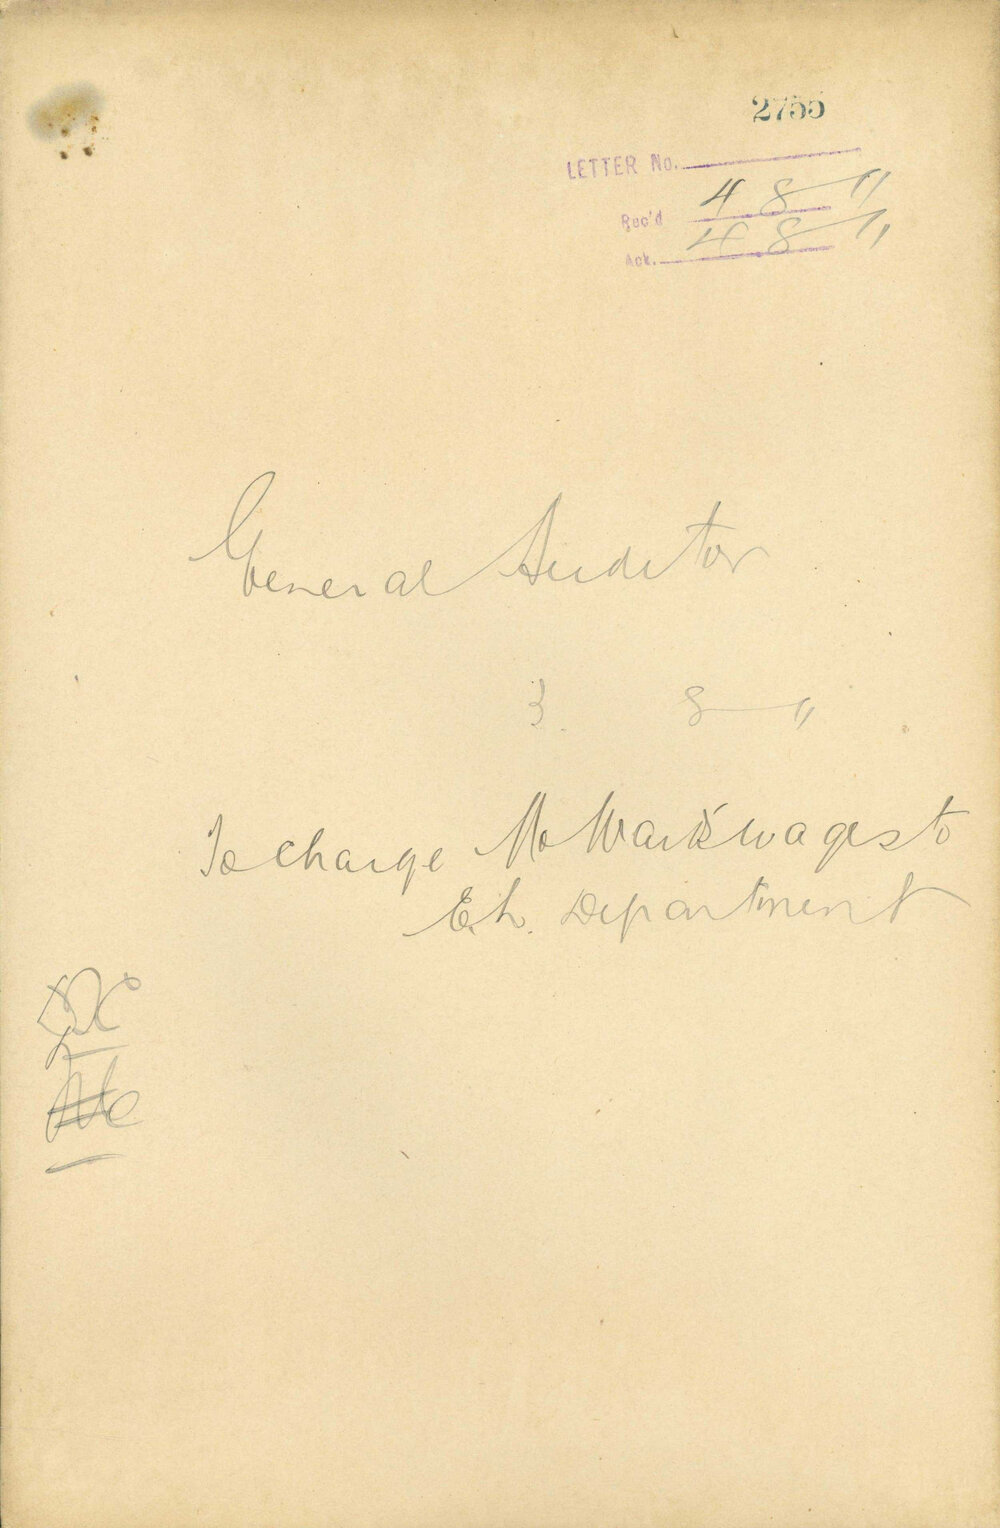 2755
LETTER No.
Rec'd 4 8 11
Ack. 4 8 11
General Auditor
3 8 11
To charge Mr Wark's wages to
Eh. Department